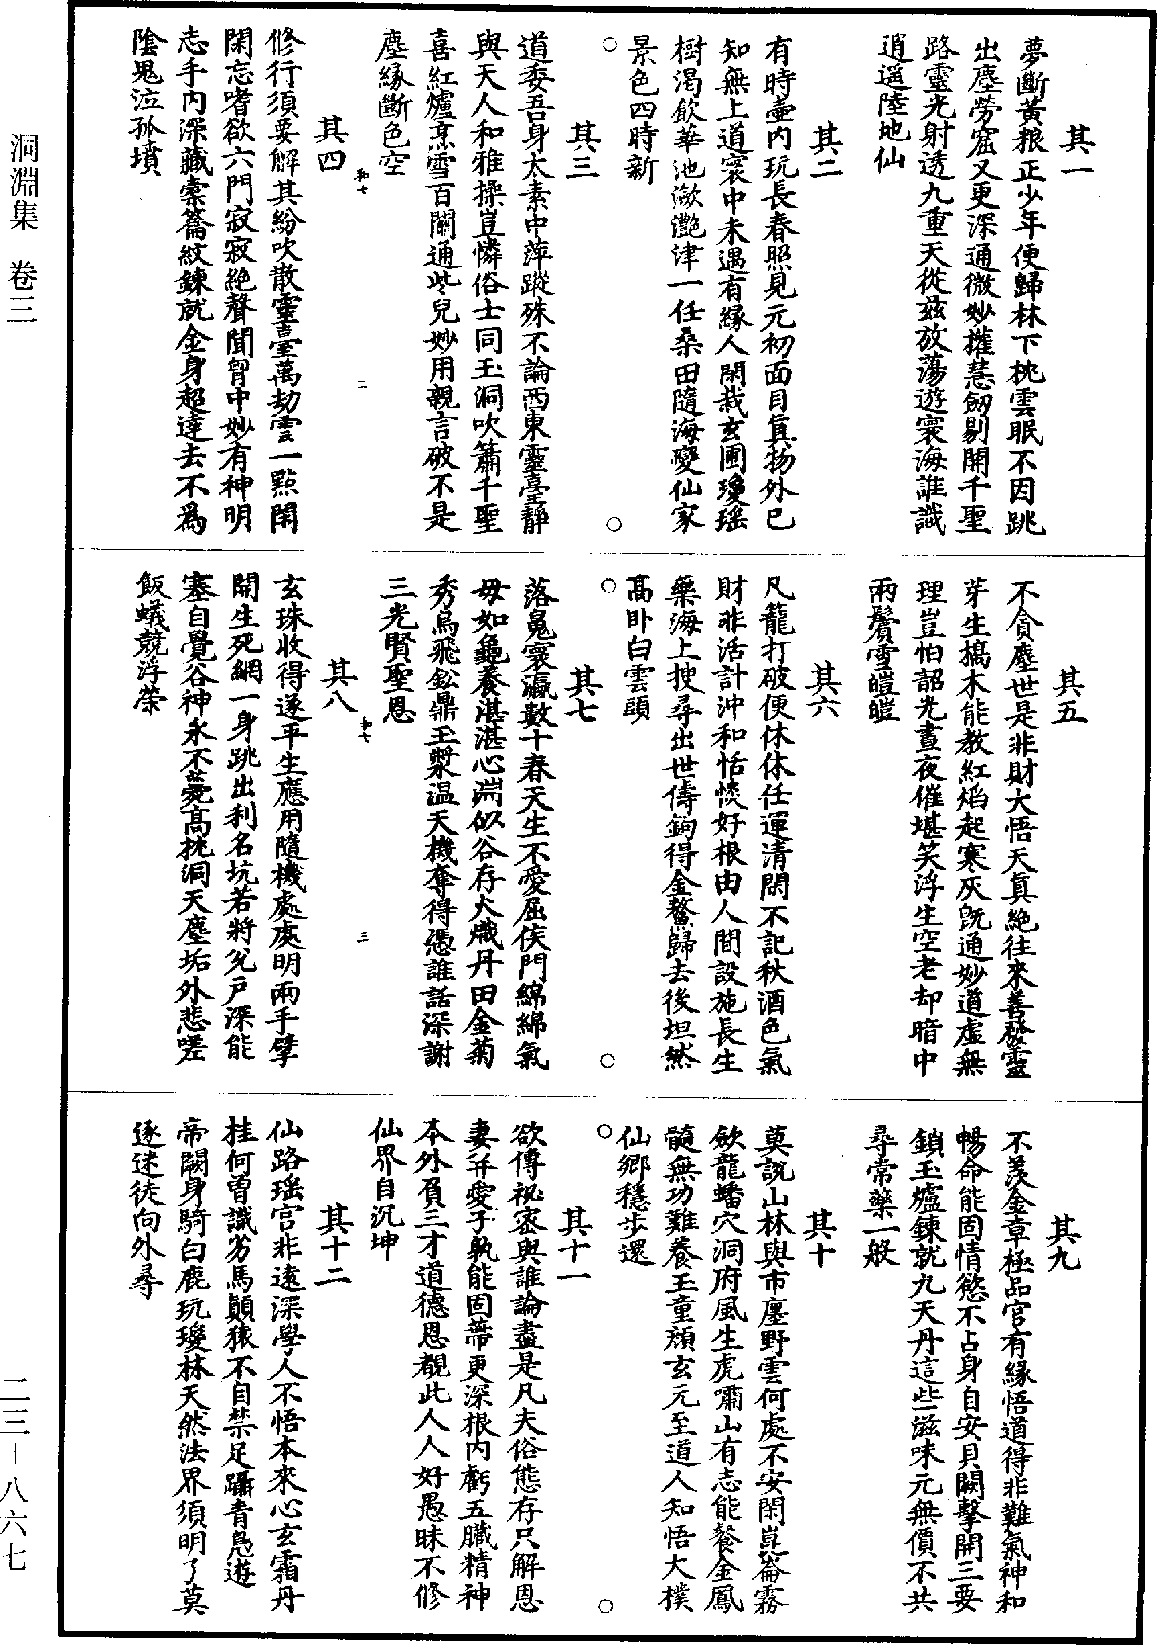 其一
夢斷黃粮正少年便歸林下枕雲眠不因跳
出塵勞窟又更深通微妙權慧劒剔開千聖
路靈光射透九重天從兹放蕩遊寰海誰識
逍遥陸地仙
其二
有時壷內玩長春照見元初面目真物外已
知無上道寰中未遇有緣人閑栽玄圃瓊瑶
樹渴飲華池瀲灧津一任桑田隨海變仙家
景色四時新
其三
道委吾身太素中萍蹤殊不論西東靈臺靜
與天人和雅操豈憐俗士同玉洞吹簫千聖
喜紅爐烹雪百關通些兒妙用親言破不是
塵緣斷色空
其四
修行須要解其紛吹散靈臺萬劫雲一點閑
閑忘嗜欲六門寂寂絶聲聞胷中妙有神明
志手內深藏橐籥紋鍊就金身超達去不為
陰鬼泣孤墳
其五
不貪塵世是非財大悟天真絶往來善發靈
芽生槁木能教紅焰起寒灰旣通妙道虛無
理豈怕韶光晝夜催堪笑浮生空老却暗中
兩鬢雪皚皚
其六
凡籠打破便休休任運清閑不記秋酒色氣
財非活計沖和恬惔好根由人間設施長生
藥海上搜尋出世儔鉤得金鰲歸去後坦然
高卧白雲頭
其七
落䰟寰瀛數十春天生不愛屈侯門綿綿氣
母如龜養湛湛心淵似谷存火熾丹田金菊
秀烏飛鈆鼎玉漿温天機奪得憑誰話深謝
三光賢聖恩
其八
玄珠收得遂平生應用隨機處處明兩手擘
開生死網一身跳出利名坑若將兊戸深能
塞自覺谷神永不薨高枕洞天塵垢外悲嗟
飯蟻競浮榮
其九
不羡金章極品官有緣悟道得非難氣神和
暢命能固情慾不占身自安貝闕擊開三要
鎖玉爐鍊就九天丹這些滋味元無價不共
尋常藥一般
其十
莫説山林與市廛野雲何處不安閑崑崙霧
歛龍蟠穴洞府風生虎嘯山有志能餐金鳳
髓無功難養玉童顔玄元至道人知悟大樸
仙鄉穩步還
其十一
欲傳祕密與誰論盡是凡夫俗態存只解恩
妻并愛子孰能固蔕更深根內虧五臟精神
本外負三才道德恩覩此人人好愚昧不修
仙界自沉坤
其十二
仙路瑶宫非遠深學人不悟本來心玄霜丹
桂何曽識劣馬顛猿不自禁足躡青鳧遊
帝闕身騎白鹿玩瓊林天然法界須明了莫
逐迷徒向外尋
洞淵集　卷三
二三－八六七